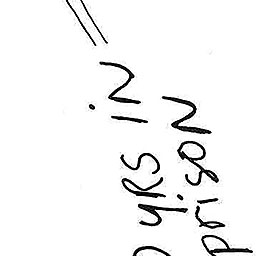 YRS IN
prison